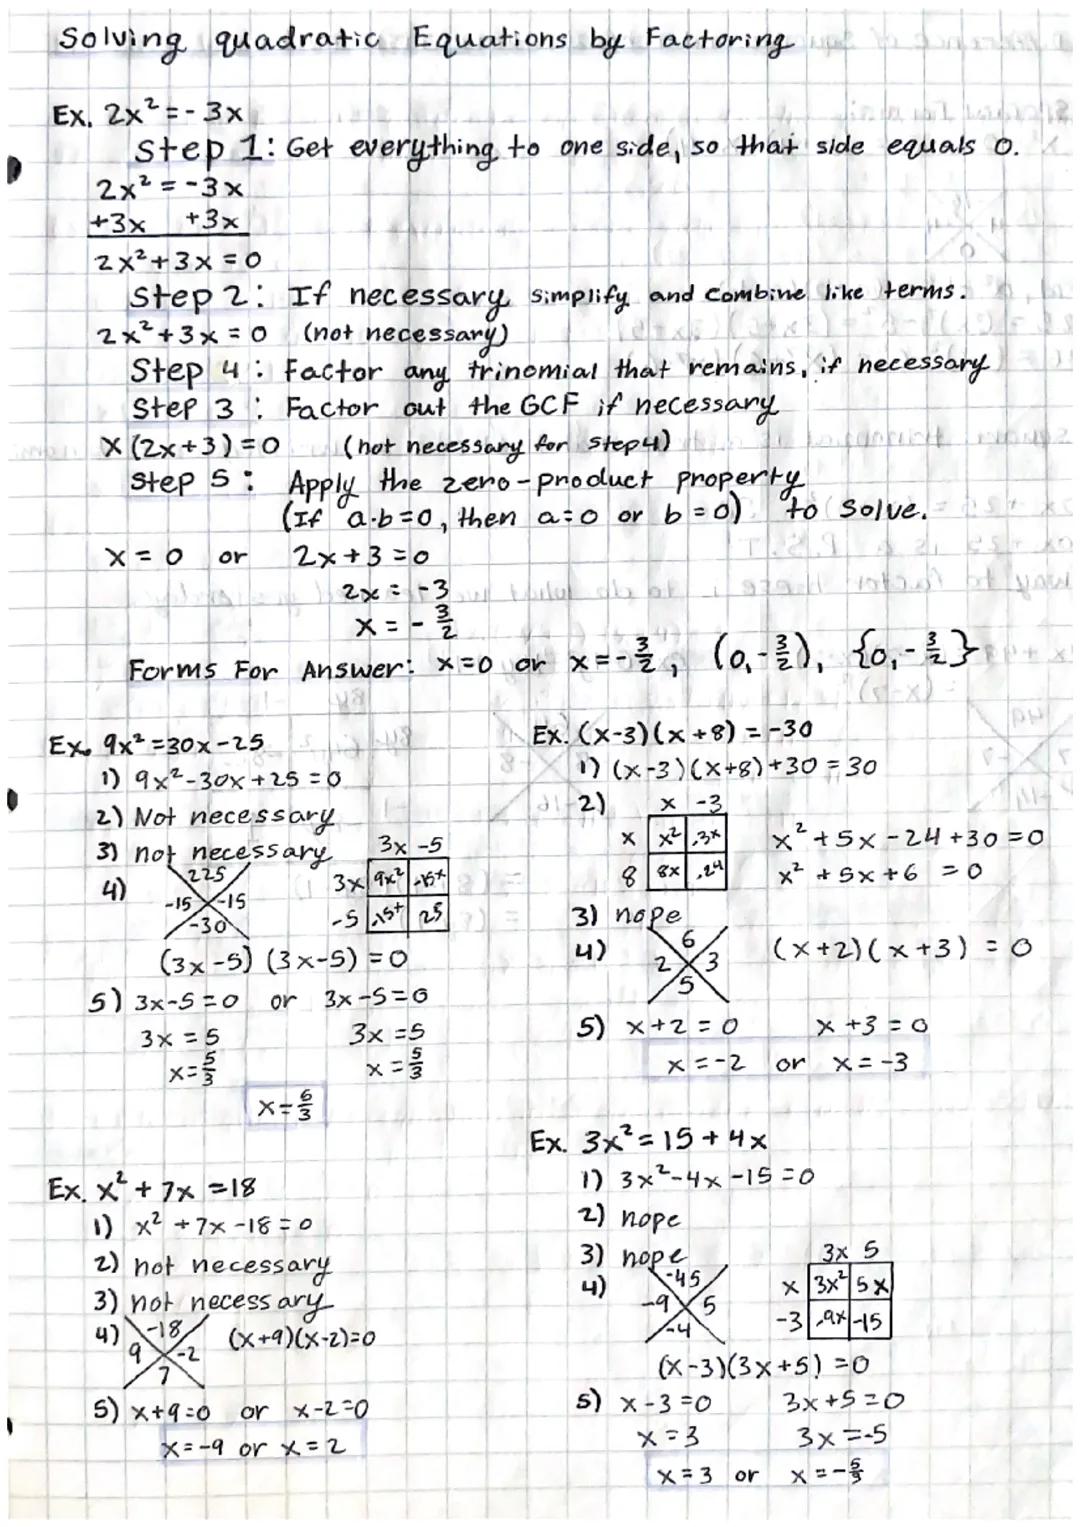 Solving quadratic Equations by Factoring
Ex. 2x² = - 3x
Step 1: Get everything to one side, so that side equals 0.
2x² = -3x
+3x +3x
2x² + 3x = 0
Step 2: If necessary simplify and combine like terms.
2x² + 3x = 0 (not necessary)
Step 4: Factor any trinomial that remains, if necessary
Step 3: Factor out the GCF if necessary
x(2x+3) = 0 (not necessary for step 4)
Step 5: Apply the zero-product property
(If a·b=0, then a=0 or b=0) to solve.
x = 0 or 2x + 3 = 0
2x = -3
x = - 3/2
Forms For Answer: x=0 or x=-3/2, (0,-3/2), {0,-3/2}
Ex. 9x² = 30x - 25
1) 9x² - 30x + 25 = 0
2) Not necessary
3) not necessary
4) 225
-15 -15
-30
3x -5
3x 9x² -15x
-5 -15x 25
(3x-5)(3x-5) = 0
5) 3x-5=0 or 3x-5=0
3x = 5 3x = 5
x = 5/3 x = 5/3
x = 6/3
Ex. (x-3)(x+8) = -30
1) (x-3)(x+8)+30 = 30
2) x -3
x x² -3x
8 8x -24
x² + 5x - 24 + 30 = 0
x² + 5x + 6 = 0
3) nope
4) 6
2 3
5
(x+2)(x+3) = 0
5) x+2 = 0 x+3 = 0
x = -2 or x = -3
Ex. x² + 7x = 18
1) x² + 7x - 18 = 0
2) not necessary
3) not necessary
4) -18
9 -2
7
(x+9)(x-2)=0
5) x+9=0 or x-2=0
x=-9 or x=2
Ex. 3x² = 15 + 4x
1) 3x² - 4x - 15 = 0
2) nope
3) nope
4) -45
-9 5
-4
3x 5
x 3x² 5x
-3 -9x -15
(x-3)(3x+5) = 0
5) x-3=0 3x+5=0
x=3 3x=-5
x=3 or x=-5/3